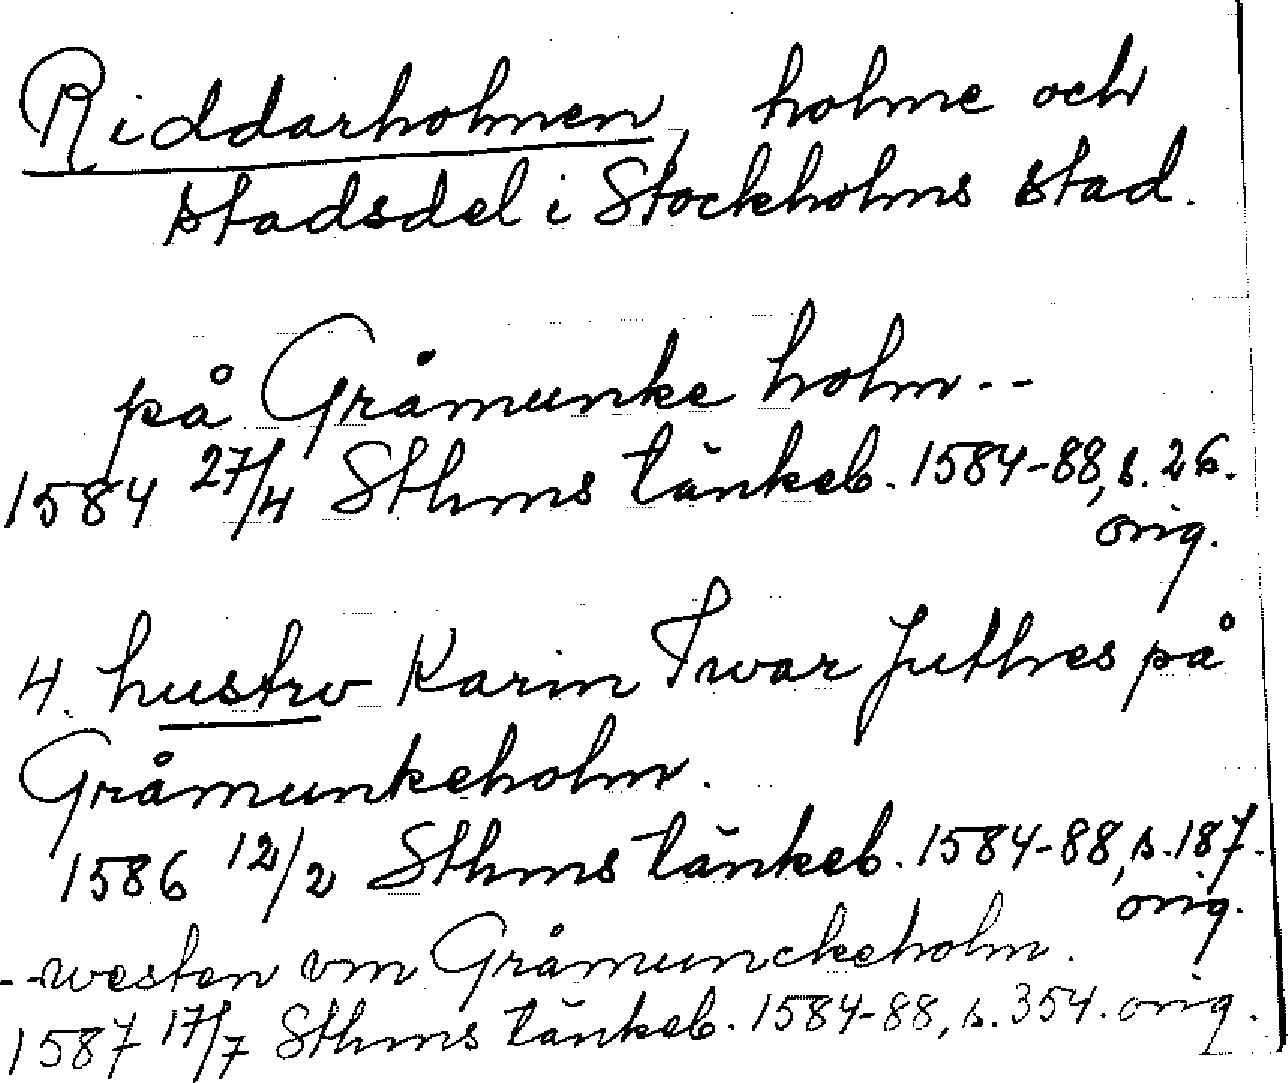 Riddarholmen, holme och
stadsdel i Stockholms stad.
på Gråmunke holm--
1584 27/4 Sthms tänkeb. 1584-88, s. 26.
orig.
4. hustrv Karin Twar Juthes på
Gråmunkeholm.
1586 12/2 Sthms tänkeb. 1584-88, s. 187.
orig.
--westen vm Gråmunckeholm.
1587 17/7 Sthms tänkeb. 1584-88, s. 354. orig.